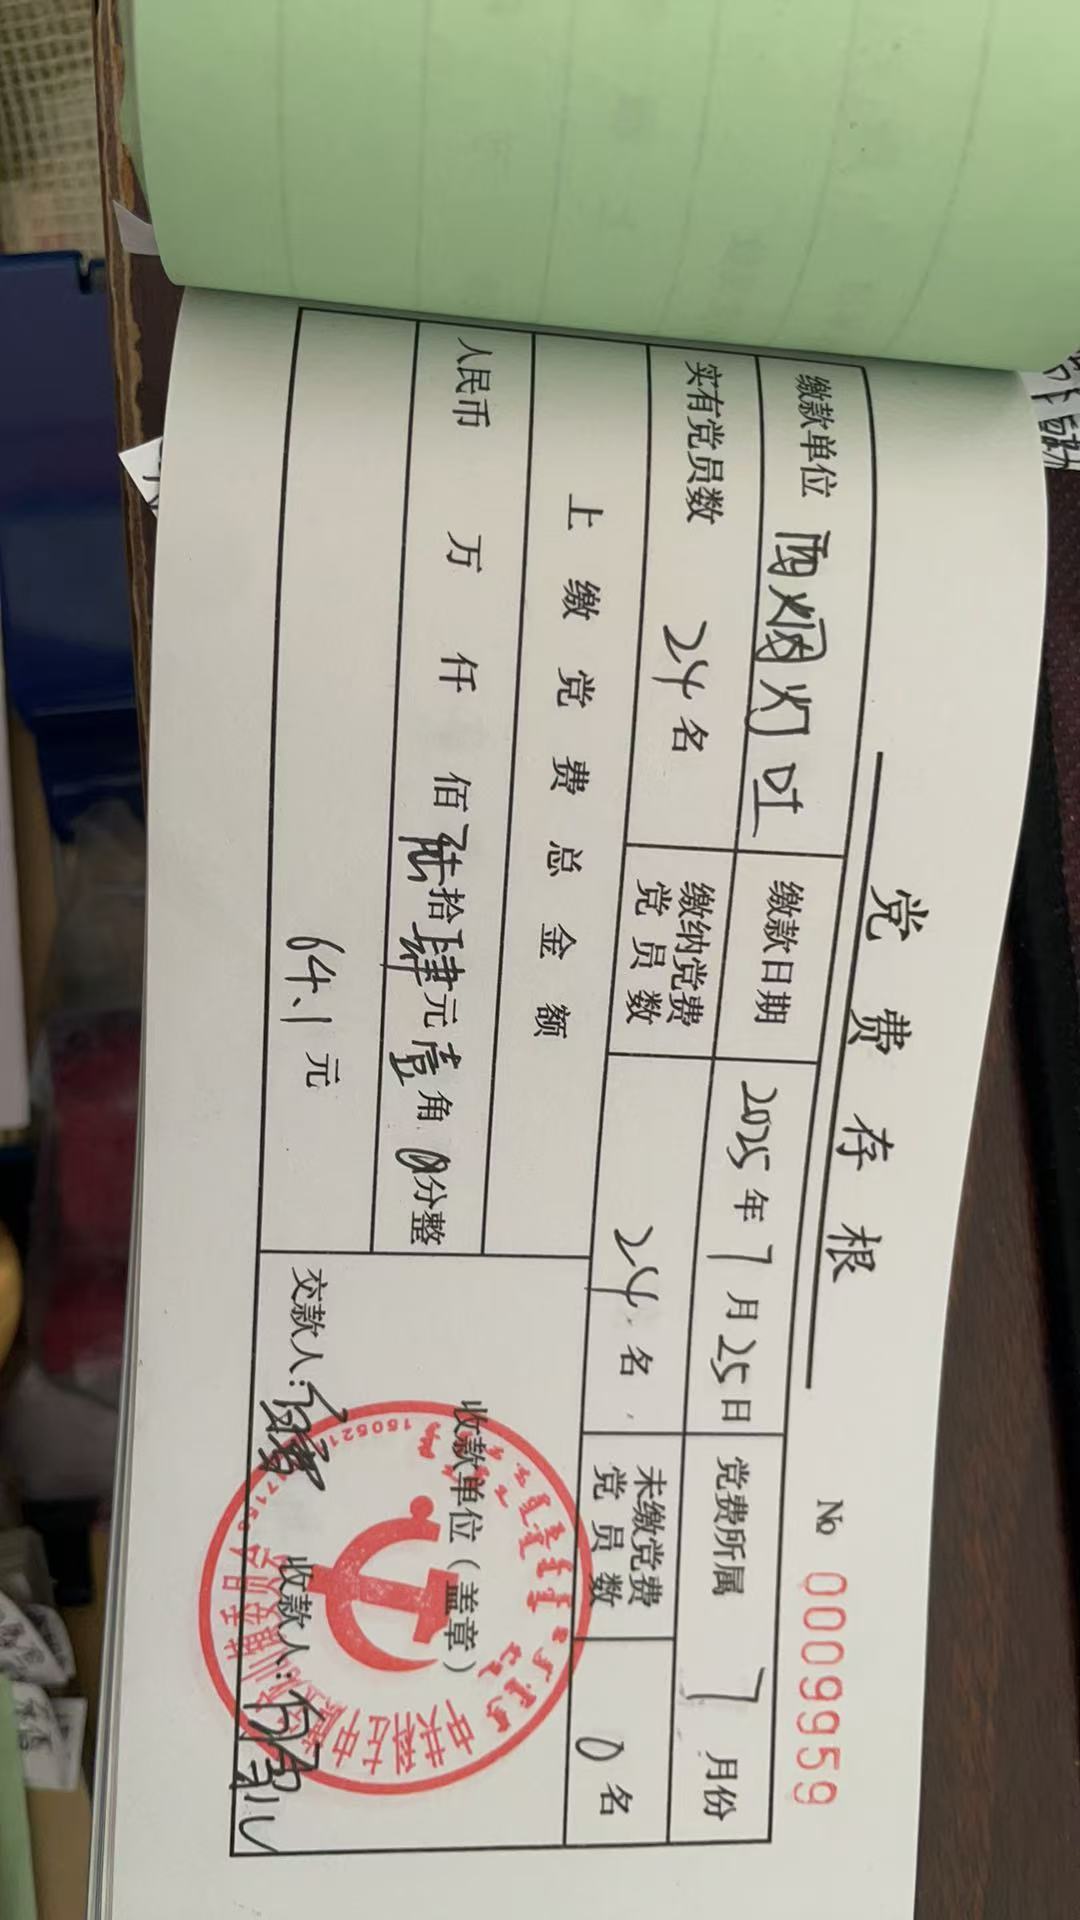 党费存根
No 0009959
缴款单位 西烟灯吐 缴款日期 2025年7月25日 党费所属 7月份
实有党员数 24名 缴纳党费党员数 24名 未缴党费党员数 0名
上缴党费总金额
收款单位（盖章）
人民币 万 仟 佰陆拾肆元壹角0分整
64.1元
交款人： 收款人：